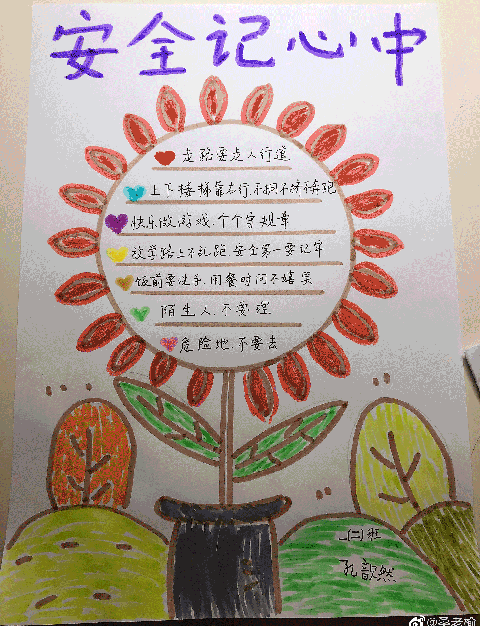 安全记心中
走路要走人行道
上下楼梯靠右行,不拥不挤不奔跑
快乐做游戏,个个守规章
放学路上不乱跑,安全第一要记牢
饭前要洗手,用餐时间不嬉笑
陌生人,不要理
危险地,不要去
一(二)班
孔歆然
@桑老榆